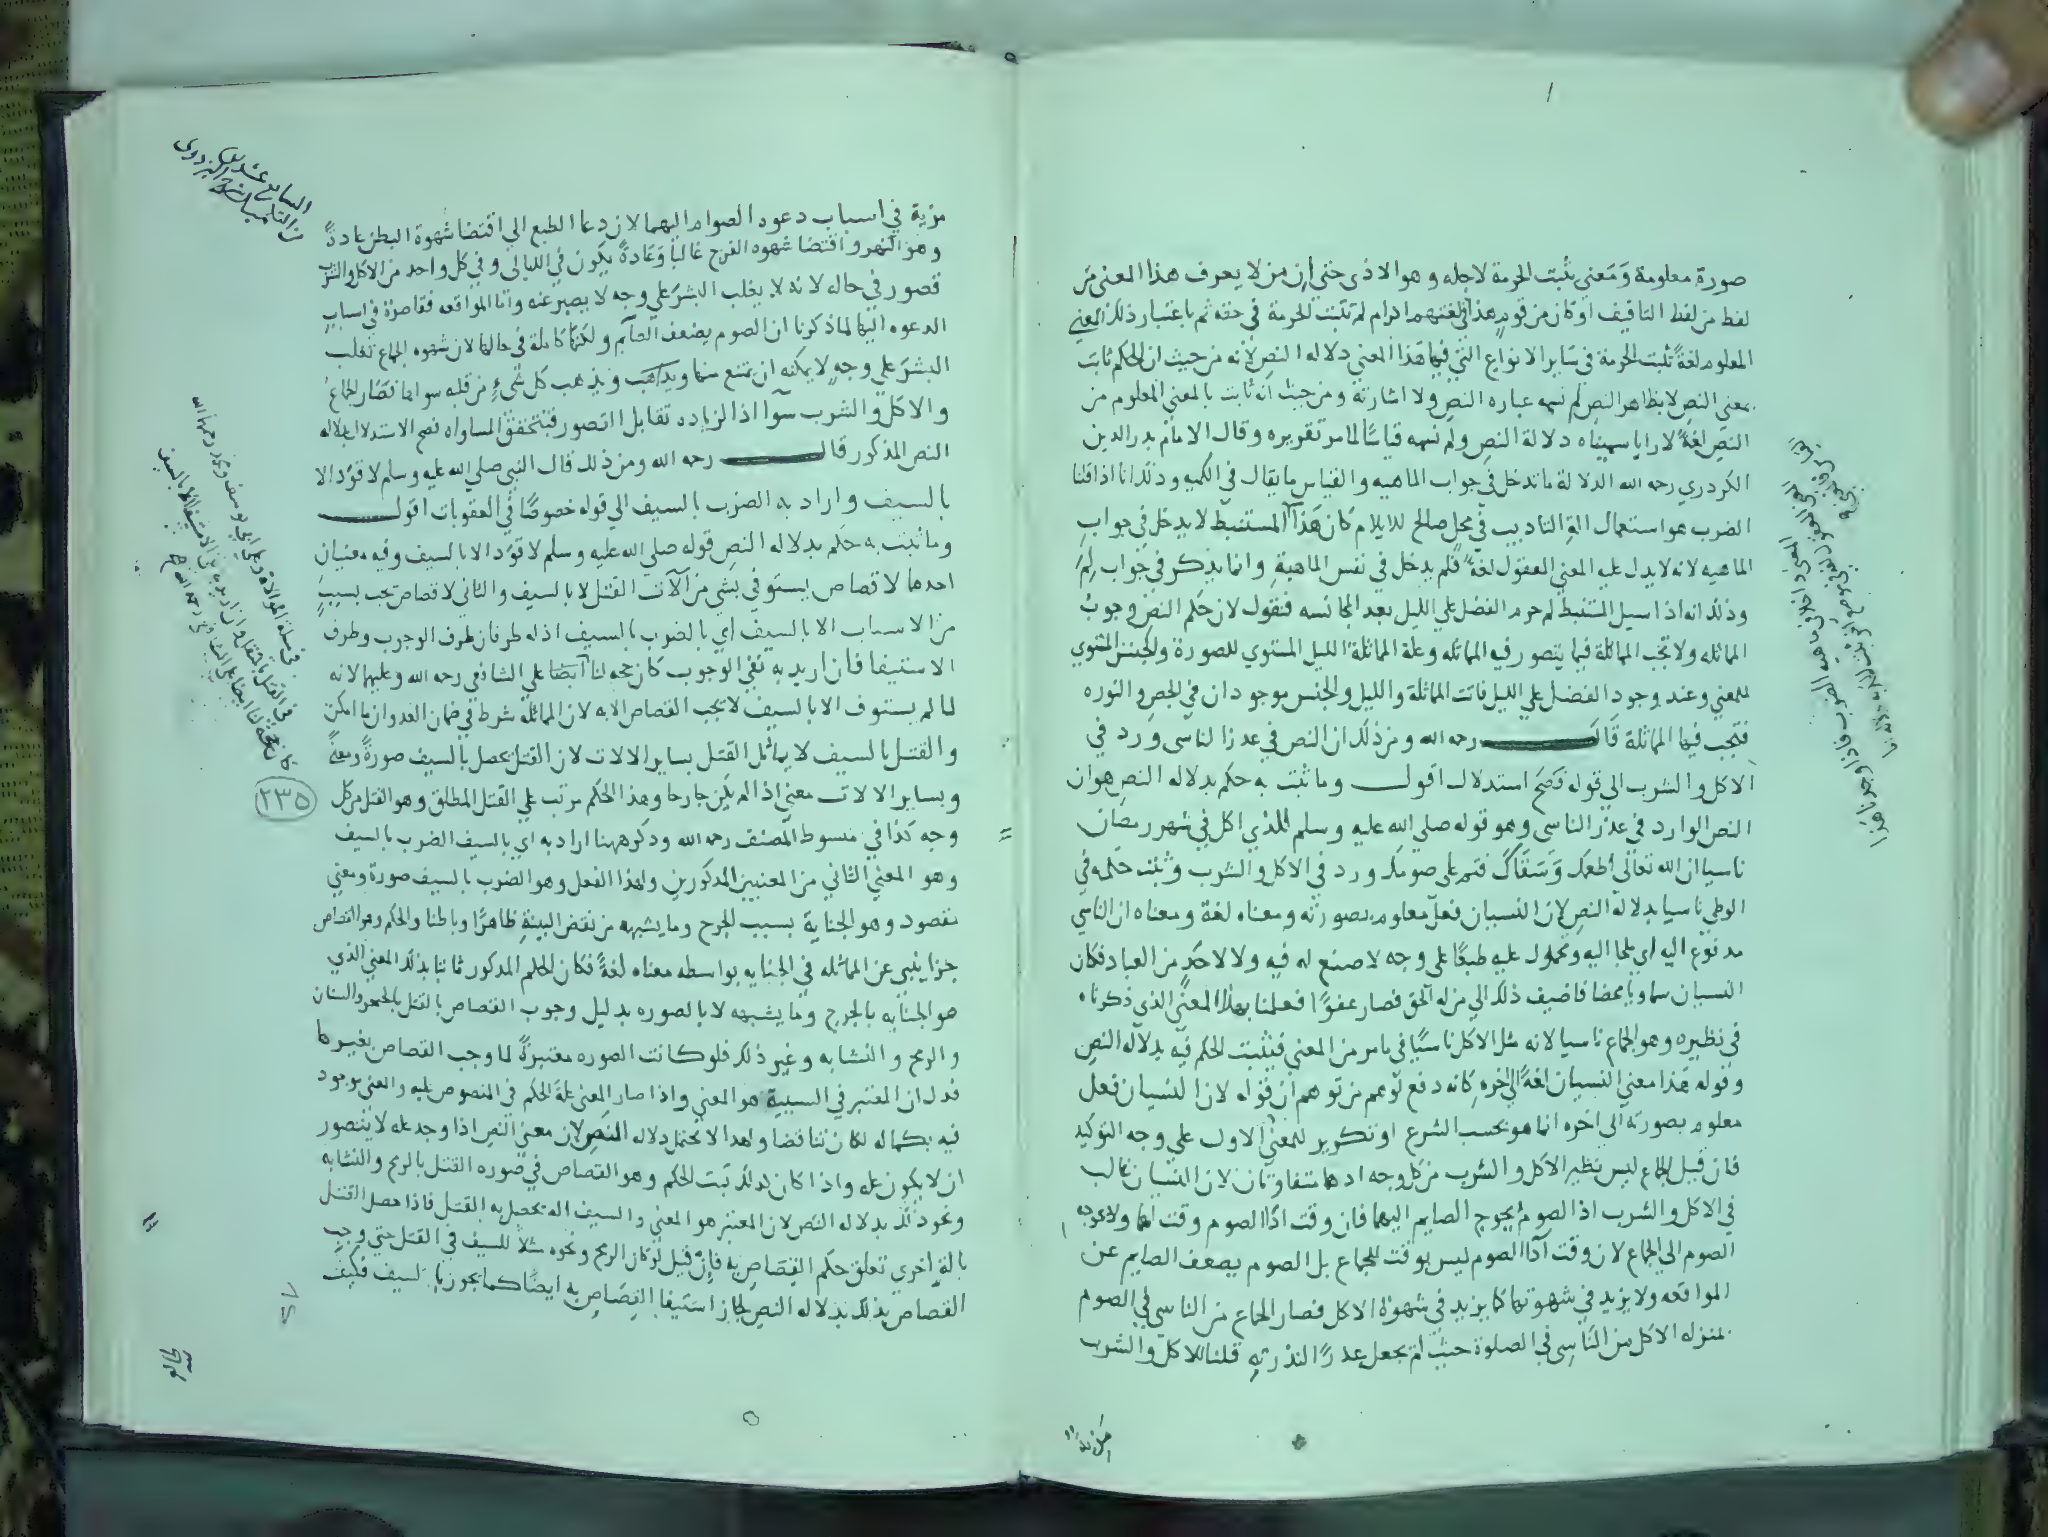 صورة معلومة ومعني ثبت الحرمة لاجله وهو الاذى حتى ان من لا يعرف هذا المعنى من
لفظ من لفظ التافيف او كان من قوم هذا في لغتهم اكرام لم تثبت الحرمة في حقه ثم باعتبار ذلك المعني
المعلوم لغة ثبتت الحرمة في ساير الانواع التي فيها هذا المعني دلاله النص لانه من حيث ان الحكم ثابت
بمعني النص لا بظاهر النص لم نسمه عباره النص ولا اشارته ومن حيث انه ثابت بالمعني المعلوم من
النص لغة لا رايا سميناه دلالة النص ولم نسمه قياسا لما مر تقريره وقال الامام بدر الدين
الكردري رحمه الله الدلالة ما تدخل في جواب الماهيه والقياس ما يقال في الكميه وذلك انا اذا قلنا
الضرب هو استعمال الة التاديب في محل صالح للايلام كان هذا المستنبط لا يدخل في جواب
الماهيه لانه لا يدل عليه المعني المعقول لغة فلم يدخل في نفس الماهية وانما يذكر في جواب لم
وذلك انه اذا سيل المستنبط لم حرم الفضل علي الكيل بعد المجانسه فنقول لان حكم النص وجوب
المماثله ولا تجب المماثلة فيما يتصور فيه المماثله وعلة المماثلة الكيل المستوي للصورة والجنس المستوي
للمعني وعند وجود الفضل علي الكيل فاتت المماثلة والكيل والجنس موجودان في الجص والنوره
فتجب فيها المماثلة قال رحمه الله ومن ذلك ان النص في عذر الناسى ورد في
الاكل والشرب الي قوله فصح استدلال اقول وما ثبت به حكم بدلاله النص هو ان
النص الوارد في عذر الناسى وهو قوله صلى الله عليه وسلم للذي اكل في شهر رمضان
ناسيا ان الله تعالى اطعمك وسقاك فتم على صومك ورد في الاكل والشرب وثبت حكمه في
الوطي ناسيا بدلالة النص لان النسيان فعل معلوم بصورته ومعناه لغة ومعناه ان الناسي
مدفوع اليه اي ملجا اليه ومحمول عليه طبعا علي وجه لا صنع له فيه ولا لاحد من العباد فكان
النسيان سماويا محضا فاضيف ذلك الي من له الحق فصار عفوا فعملنا بهذا المعني الذى ذكرناه
في نظيره وهو الجماع ناسيا لانه مثل الاكل ناسيا في ما مر من المعني فيثبت الحكم فيه بدلاله النص
وقوله هذا معني النسيان لغة الي اخره كانه دفع لوهم من توهم ان قوله لان النسيان فعل
معلوم بصورته الى اخره انما هو بحسب الشرع او تكرير للمعني الاول علي وجه التوكيد
فان قيل الجماع ليس نظير الاكل والشرب من كل وجه اذ هما متفاوتان لان النسيان غالب
في الاكل والشرب اذ الصوم يحوج الصايم اليهما فان وقت اداا الصوم وقت لهما ولا يحوجه
الصوم الي الجماع لان وقت اداا الصوم ليس بوقت للجماع بل الصوم يضعف الصايم عن
المواقعه ولا يزيد في شهوتها كما يزيد في شهوة الاكل فصار الجماع من الناسى في الصوم
بمنزله الاكل من الناسى في الصلوة حيث لم يجعل عذرا لندرته قلنا للاكل والشرب
مزية في اسباب دعوه الصوام اليهما لان دعا الطبع الي اقتضا شهوة البطن عادة
وهو النهر واقتضا شهوه الفرج غالبا وعادة يكون في الليالى وفي كل واحد من الاكل والشرب
قصور في حاله لانه لا يغلب البشر علي وجه لا يصبر عنه واما المواقعه فقاصرة في اسباب
الدعوه اليها لما ذكرنا ان الصوم يضعف الصايم ولكنها كاملة في حالها لان شهوه الجماع تغلب
البشر علي وجه لا يمكنه ان يمتنع منها ويذهب كل شيء من قلبه سواها فصار الجماع
والاكل والشرب سواا اذ الزياده تقابل القصور فتتحقق المساواه فصح الاستدلال بدلاله
النص المذكور قال رحمه الله ومن ذلك قال النبي صلى الله عليه وسلم لا قود الا
بالسيف واراد به الضرب بالسيف الي قوله خصوصا في العقوبات اقول
وما ثبت به حكم بدلاله النص قوله صلى الله عليه وسلم لا قود الا بالسيف وفيه معنيان
احدهما لا قصاص يستوفي بشي من الآت القتل الا بالسيف والثاني لا قصاص تجب بسبب
من الاسباب الا بالسيف اي بالضرب بالسيف اذ له طرفان طرف الوجوب وطرف
الاستيفا فان اريد به نفي الوجوب كان حجه لنا ايضا علي الشافعي رحمه الله وعليهما لانه
لما لم يستوف الا بالسيف لا تجب القصاص الا به لان المماثلة شرط في ضمان العدوان ما امكن
والقتل بالسيف لا يماثل القتل بساير الالات لان القتل يحصل بالسيف صورة ومعني
وبساير الالات معني اذا لم يكن جارحا وهذا الحكم مرتب علي القتل المطلق وهو القتل من كل
وجه كذا في مبسوط المصنف رحمه الله وذكر ههنا اراد به اي بالسيف الضرب بالسيف
وهو المعني الثاني من المعنيين المذكورين ولهذا الفعل وهو الضرب بالسيف صورة ومعني
مقصود وهو الجناية بسبب الجرح وما يشبهه من نقض البنية ظاهرا وباطنا والحكم وهو القصاص
جزا يبني عن المماثله في الجنايه بواسطه معناه لغة فكان الحكم المذكور ثابتا بذلك المعني الذي
هو الجنايه بالجرح وما يشبهه لا بالصوره بدليل وجوب القصاص بالقتل بالخنجر والسنان
والرمح والنشابه وغير ذلك فلو كانت الصوره معتبرة لما وجب القصاص بغيرها
فدل ان المعتبر في السببية هو المعني واذا صار المعني علة الحكم في المنصوص عليه والمعني موجود
فيه بكماله لكان تناقضا ولهذا لا يحتمل دلاله النص لان معني النص اذا وجد عله لا يتصور
ان لا يكون عله واذا كان كذلك ثبت الحكم وهو القصاص في صوره القتل بالرمح والنشابه
ونحو ذلك بدلاله النص لان المعتبر هو المعني والسيف اله تحصل به القتل فاذا حصل القتل
بالة اخري تعلق حكم القصاص به فان قيل لو كان الرمح ونحوه مثلا للسيف في القتل حتي وجب
القصاص بذلك بدلاله النص لجاز استيفا القصاص به ايضا كما يجوز بالسيف فكيف
٢٣٥